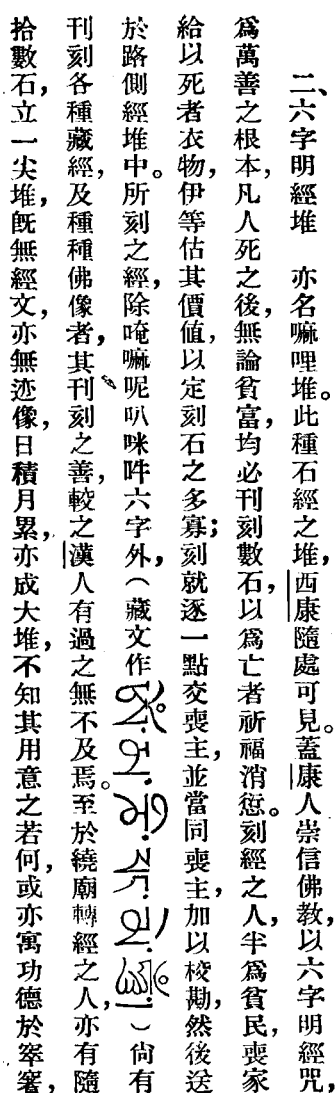 二、六字明經堆　亦名嘛哩堆。此種石經之堆，西康隨處可見。蓋康人崇信佛教，以六字明經咒，
爲萬善之根本，凡人死之後，無論貧富，均必刊刻數石，以爲亡者祈福消愆。刻經之人，半爲貧民，喪家
給以死者衣物，伊等估其價值，以定刻石之多寡；刻就逐一點交喪主，並當同喪主，加以校勘，然後送
於路側經堆中。所刻之經，除唵嘛呢叭咪吽六字外，（藏文作ཨོཾ་མ་ཎི་པད་མ་ཧཱུྃ་）尙有
刊刻各種藏經，及種種佛像者，其刊刻之善，較之漢人有過之無不及焉。至於繞廟轉經之人，亦有隨
拾數石，立一尖堆，旣無經文，亦無迹像，日積月累，亦成大堆，不知其用意之若何，或亦寓功德於窣窣，